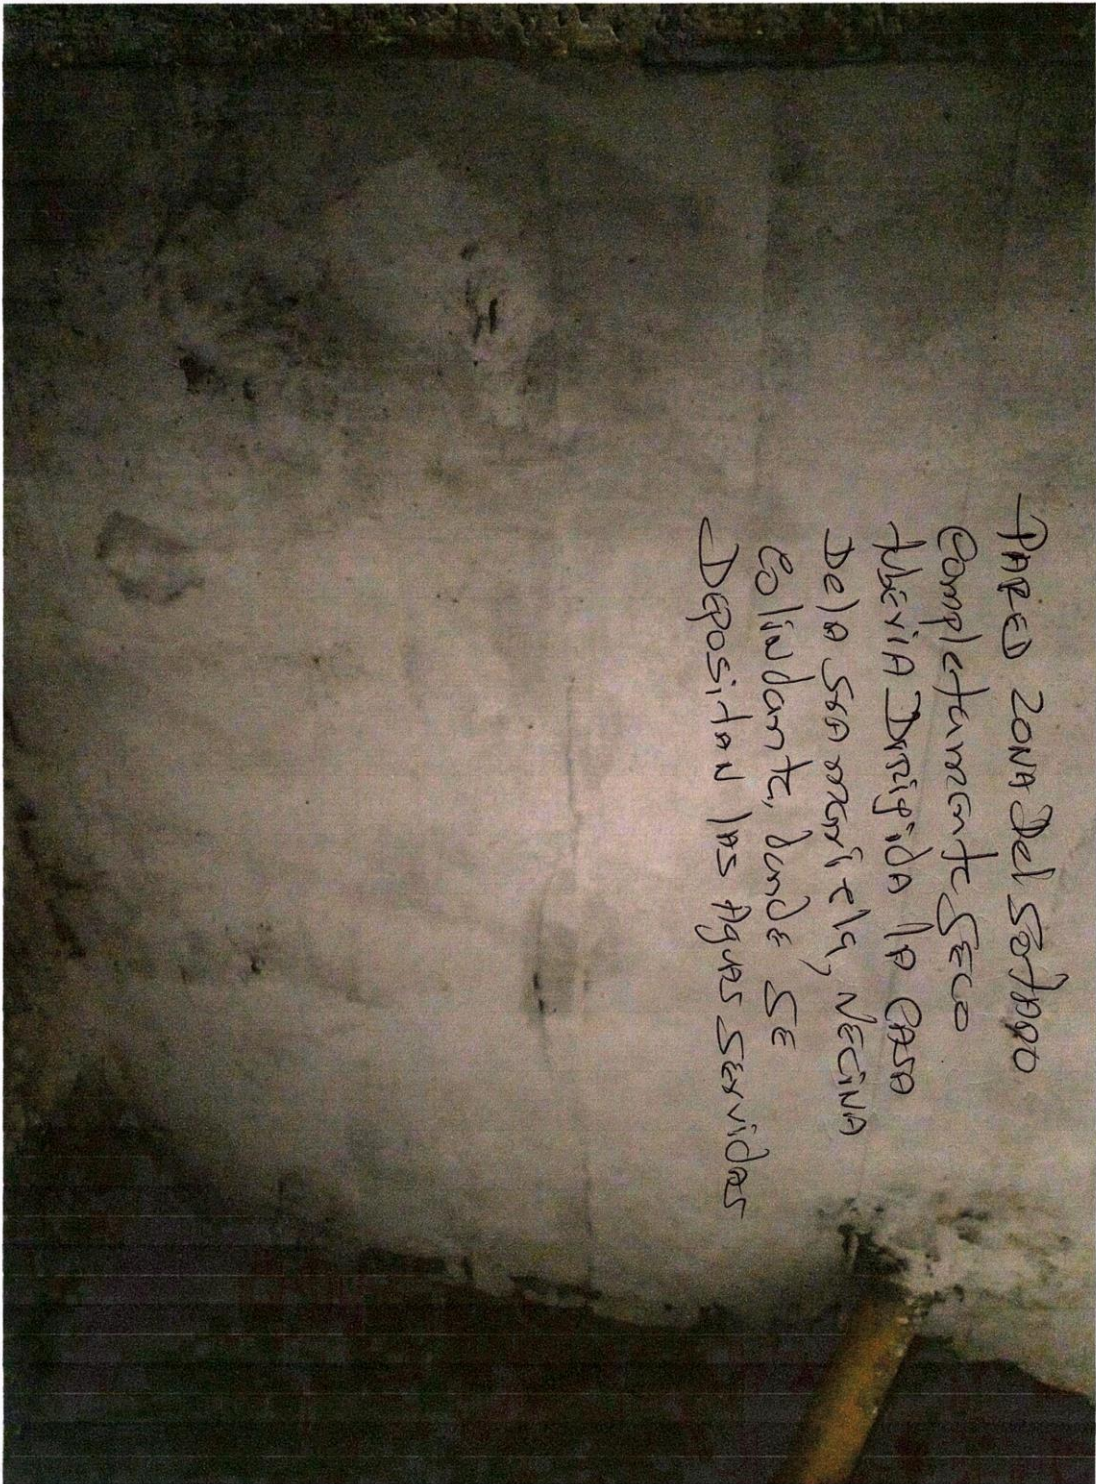 PARED ZONA Del Sótano
Completamente SECO
tubería Dirigida la CASA
De la SRA , VECINA
Colindante, donde SE
DEPOSITAN las Aguas Servidas